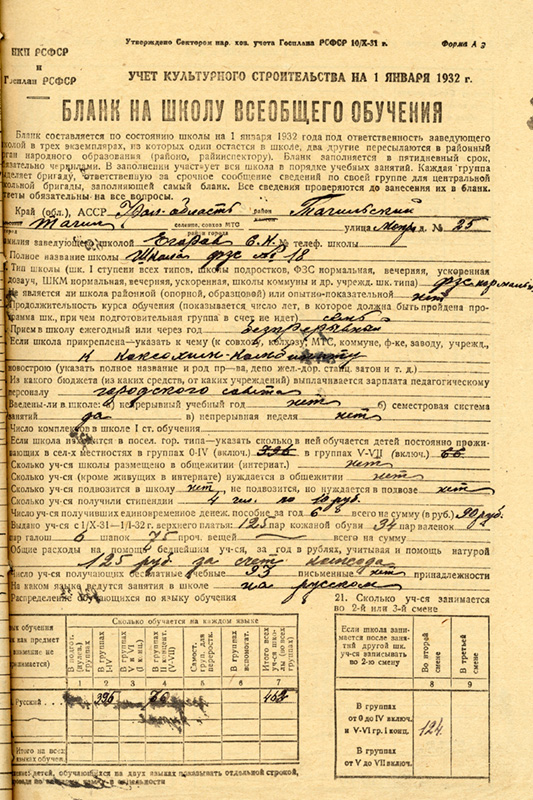 Утверждено Сектором нар. хоз. учета Госплана РСФСР 10/X-31 г.
Форма А
НКП РСФСР
и
Госплан РСФСР
УЧЕТ КУЛЬТУРНОГО СТРОИТЕЛЬСТВА НА 1 ЯНВАРЯ 1932 г.
БЛАНК НА ШКОЛУ ВСЕОБЩЕГО ОБУЧЕНИЯ
Бланк составляется по состоянию школы на 1 января 1932 года под ответственность заведующего
школой в трех экземплярах, из которых один остается в школе, два другие пересылаются в районный
орган народного образования (районо, райинспектору). Бланк заполняется в пятидневный срок,
обязательно чернилами. В заполнении участвует вся школа в порядке учебных занятий. Каждая группа
выделяет бригаду, ответственную за срочное сообщение сведений по своей группе для центральной
школьной бригады, заполняющей самый бланк. Все сведения проверяются до занесения их в бланк.
Ответы обязательны на все вопросы.
Край (обл.), АССР область район Тагильский
Тагил селение, совхоз МТС района города улица д. № 25
Фамилия заведующего школой Егоров № телеф. школы
Полное название школы Школа ФЗС № 18
Тип школы (шк. I ступени всех типов, школы подростков, ФЗС нормальная, вечерняя, ускоренная
ШКМ нормальная, вечерняя, ускоренная, школы коммуны и др. учрежд. шк. типа) ФЗС нормальн
Не является ли школа районной (опорной, образцовой) или опытно-показательной нет
Продолжительность курса обучения (показывается число лет, в которое должна быть пройдена про-
грамма шк., при чем подготовительная группа в счет не идет) семь
Прием в школу ежегодный или через год
Если школа прикреплена—указать к чему (к совхозу, колхозу, МТС, коммуне, ф-ке, заводу, учрежд.,
к комбинату
новострою (указать полное название и род пр—ва, депо жел.-дор. станц. затон и т. д.)
Из какого бюджета (из каких средств, от каких учреждений) выплачивается зарплата педагогическому
персоналу городского совета
Введены-ли в школе: а) непрерывный учебный год нет б) семестровая система
занятий да в) непрерывная неделя нет
Число комплектов в школе I ст. обучения
Если школа находится в посел. гор. типа—указать сколько в ней обучается детей постоянно прожи-
вающих в сел-х местностях в группах 0-IV (включ.) 396 в группах V-VII (включ.) 66
Сколько уч-ся школы размещено в общежитии (интернат.) нет
Сколько уч-ся (кроме живущих в интернате) нуждается в общежитии нет
Сколько уч-ся подвозится в школу нет, не подвозится, но нуждается в подвозе нет
Сколько уч-ся получили стипендии 4 чел. по 10 руб.
Число уч-ся получивших единовременное денеж. пособие за год 6 всего на сумму (в руб.) 90 руб.
Выдано уч-ся с 1/X-31—1/I-32 г. верхнего платья: 125 пар кожаной обуви 34 пар валенок
пар галош 6 шапок 75 проч. вещей всего на сумму
Общие расходы на помощь беднейшим уч-ся, за год в рублях, учитывая и помощь натурой
125 руб. за счет
Число уч-ся получающих бесплатные учебные 93 письменные нет принадлежности
На каком языке ведутся занятия в школе на русском
Распределение обучающихся по языку обучения
21. Сколько уч-ся занимается
во 2-й или 3-й смене
Язык обучения
Сколько обучается на каждом языке
В подгот. (нулев.) группах
В группах I—IV
В группах V и VI (I конц.)
В группах II концент. (V-VII)
Самост. груп. для переростк.
В группах вспомогат.
Итого всех уч-ся школы (во всех группах)
1 2 3 4 5 6 7
Русский 396 66 462
Итого на всех языках обучен.
Если школа занимается после занятий другой шк. уч-ся записывать во 2-ю смену
Во второй смене
В третьей смене
8 9
В группах
от 0 до IV включ.
и V-VI гр. I конц. 124
В группах
от V до VII включ.
детей, обучающихся на двух языках показывать отдельной строкой,